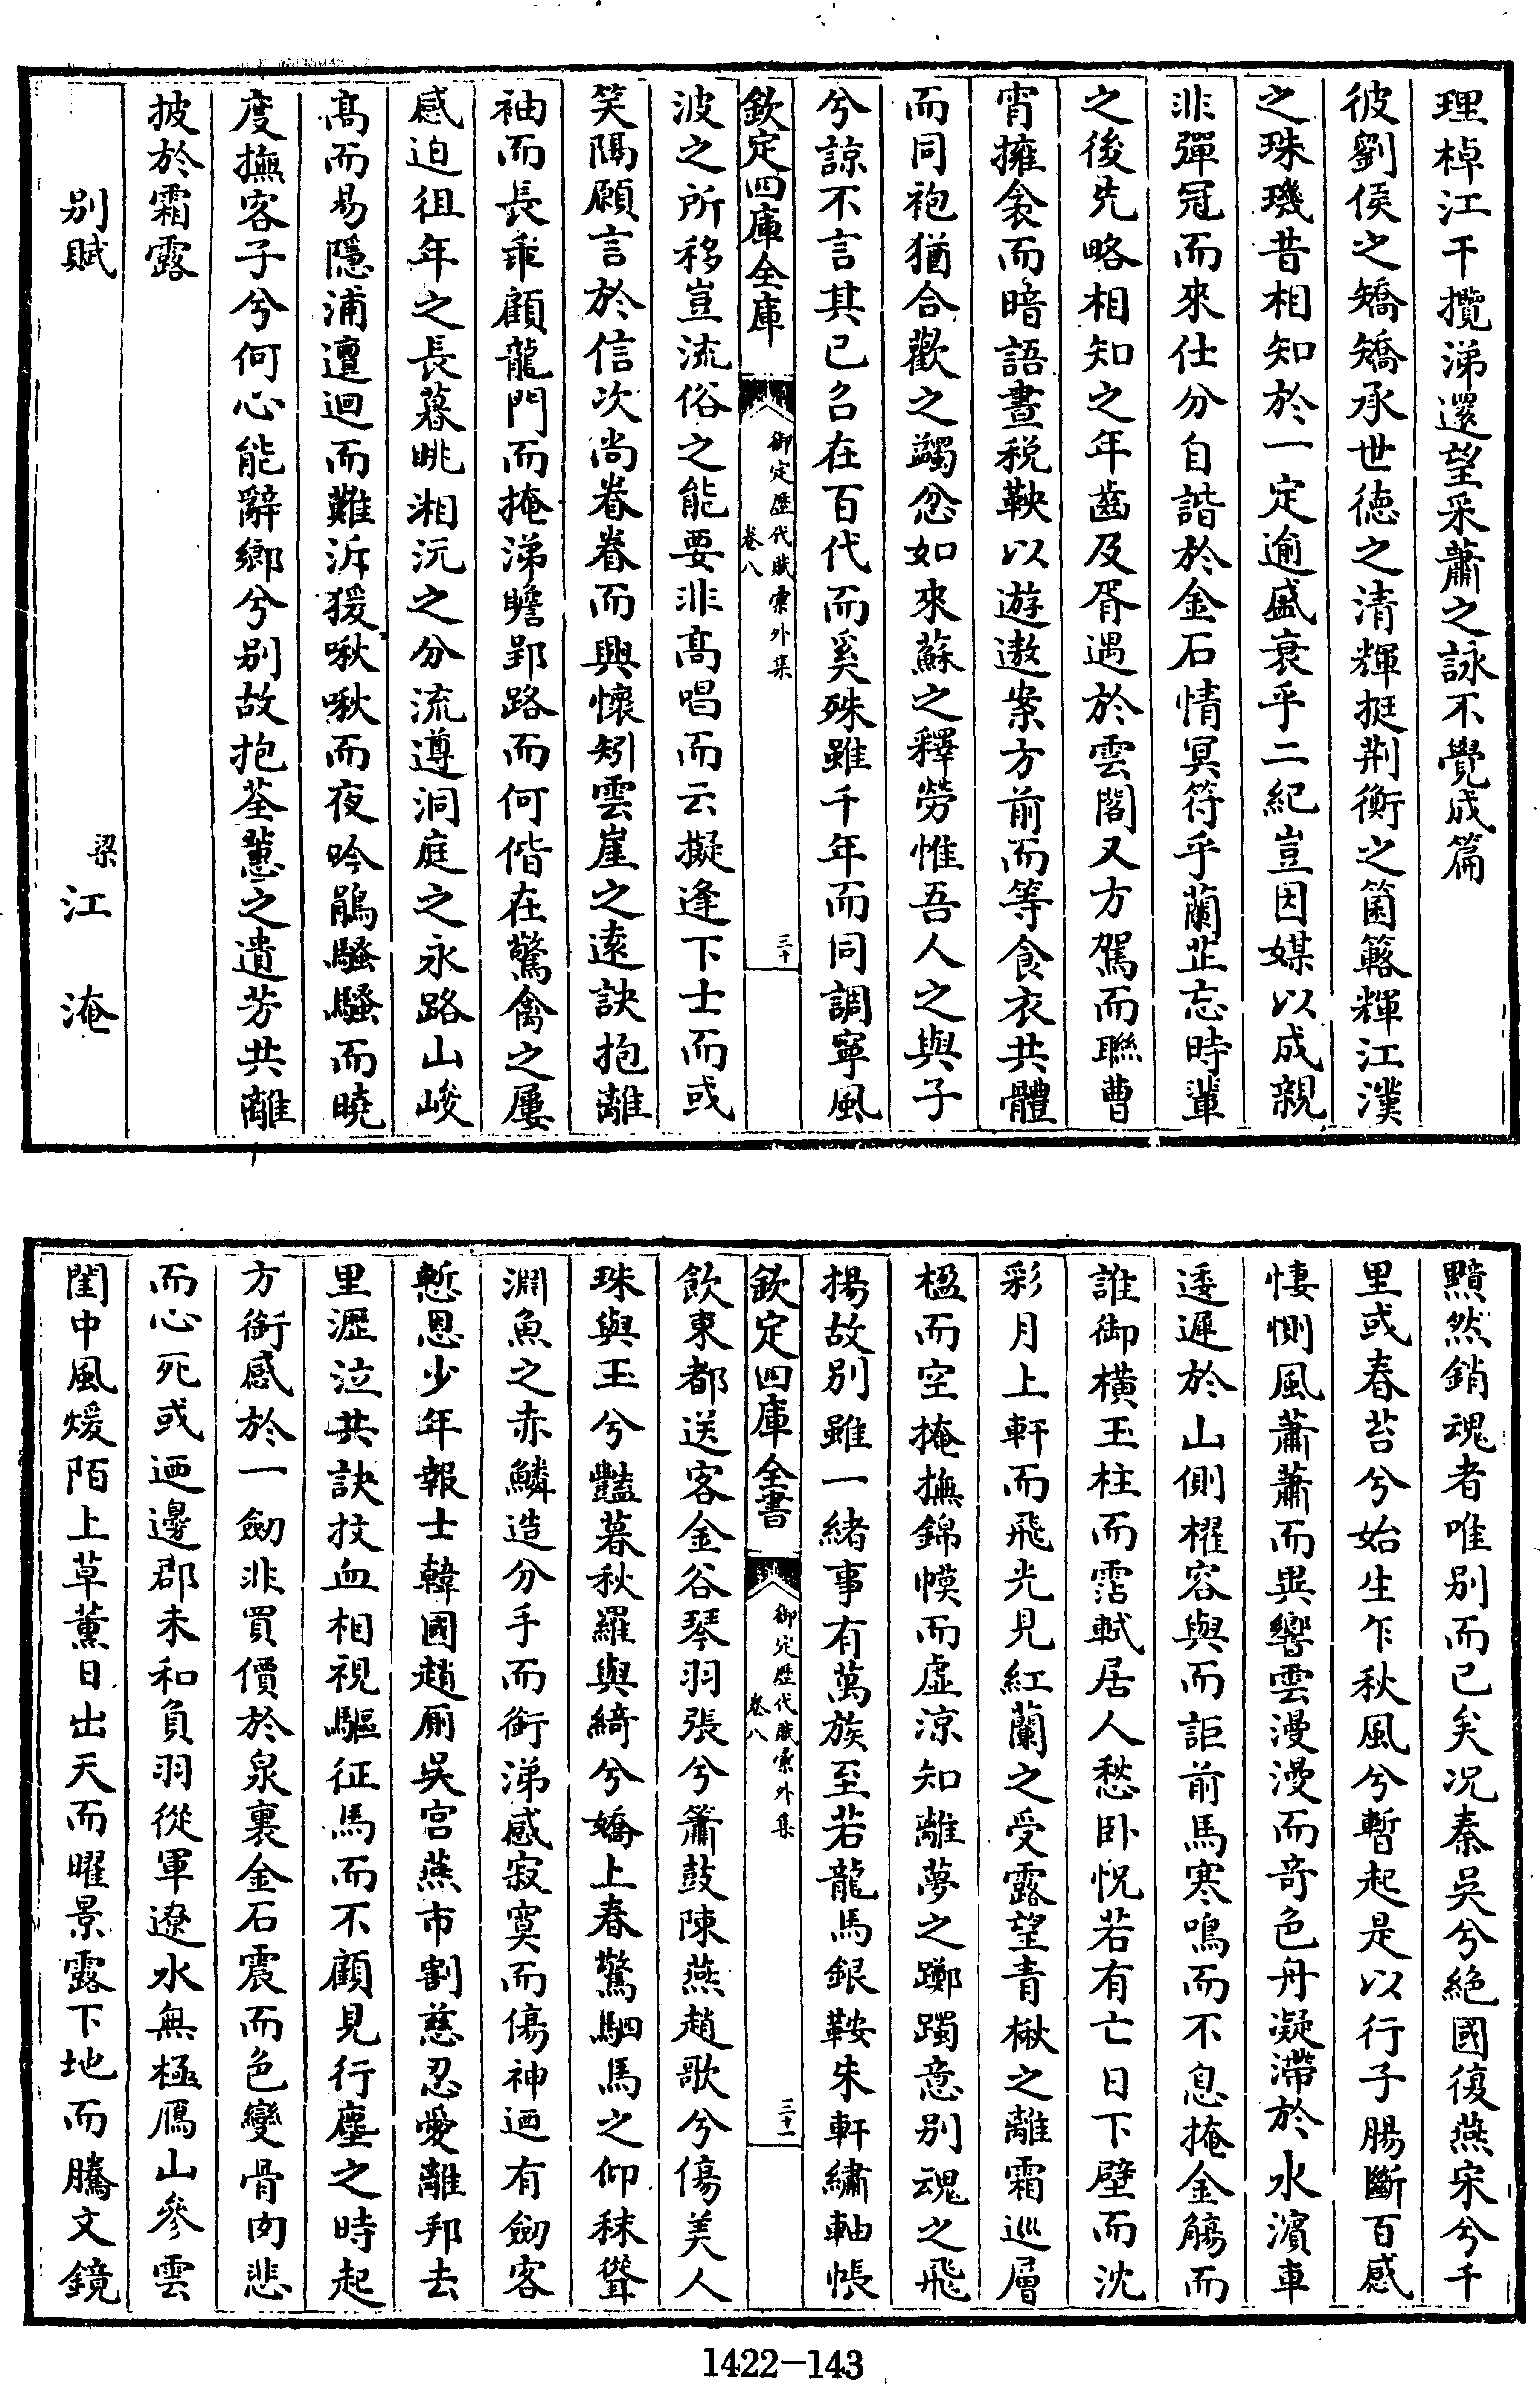 理棹江干攬涕還望采蕭之詠不覺成篇
彼劉侯之矯矯承世徳之清輝挺荆衡之箘簬輝江漢
之珠璣昔相知於一定逾盛衰乎二紀豈因媒以成親
非彈冠而來仕分自諧於金石情冥符乎蘭芷忘時輩
之後先略相知之年齒及胥遇於雲閣又方駕而聯曹
宵擁衾而晤語晝税鞅以遊遨案方前而等食衣共體
而同袍猶合歡之蠲忿如來蘇之釋勞惟吾人之與子
兮諒不言其已名在百代而奚殊雖千年而同調寧風
欽定四庫全庫
御定歴代賦彙外集
卷八
三十
波之所移豈流俗之能要非髙唱而云擬逢下士而或
笑隔願言於信次尚眷眷而興懷矧雲崖之逺訣抱離
袖而長乖顧龍門而掩涕瞻郢路而何偕在驚禽之屢
感迫徂年之長暮眺湘沅之分流遵洞庭之永路山峻
髙而易隱浦邅迴而難泝猨啾啾而夜吟鵑騷騷而曉
度撫客子兮何心能辭鄉兮别故抱荃蕙之遺芳共離
披於霜露
别賦
梁
江淹
黯然銷魂者唯别而已矣况秦吳兮絶國復燕宋兮千
里或春苔兮始生乍秋風兮暫起是以行子腸斷百感
悽惻風蕭蕭而異響雲漫漫而竒色舟凝滯於水濱車
逶遲於山側櫂容與而詎前馬寒鳴而不息掩金觴而
誰御横玉柱而霑軾居人愁卧怳若有亡日下壁而沈
彩月上軒而飛光見紅蘭之受露望青楸之離霜巡層
楹而空掩撫錦幙而虚凉知離夢之躑躅意别魂之飛
揚故别雖一緒事有萬族至若龍馬銀鞍朱軒繡軸帳
欽定四庫全書
御定歴代賦彙外集
卷八
三十一
飲東都送客金谷琴羽張兮簫鼓陳燕趙歌兮傷美人
珠與玉兮豔暮秋羅與綺兮嬌上春驚駟馬之仰秣聳
淵魚之赤鱗造分手而銜涕感寂寞而傷神廼有劒客
慙恩少年報士韓國趙厠吳宫燕市割慈忍愛離邦去
里瀝泣共訣抆血相視驅征馬而不顧見行塵之時起
方銜感於一劒非買價於泉裏金石震而色變骨肉悲
而心死或廼邊郡未和負羽從軍遼水無極鴈山參雲
閨中風煖陌上草薰日出天而曜景露下地而騰文鏡
1422-143